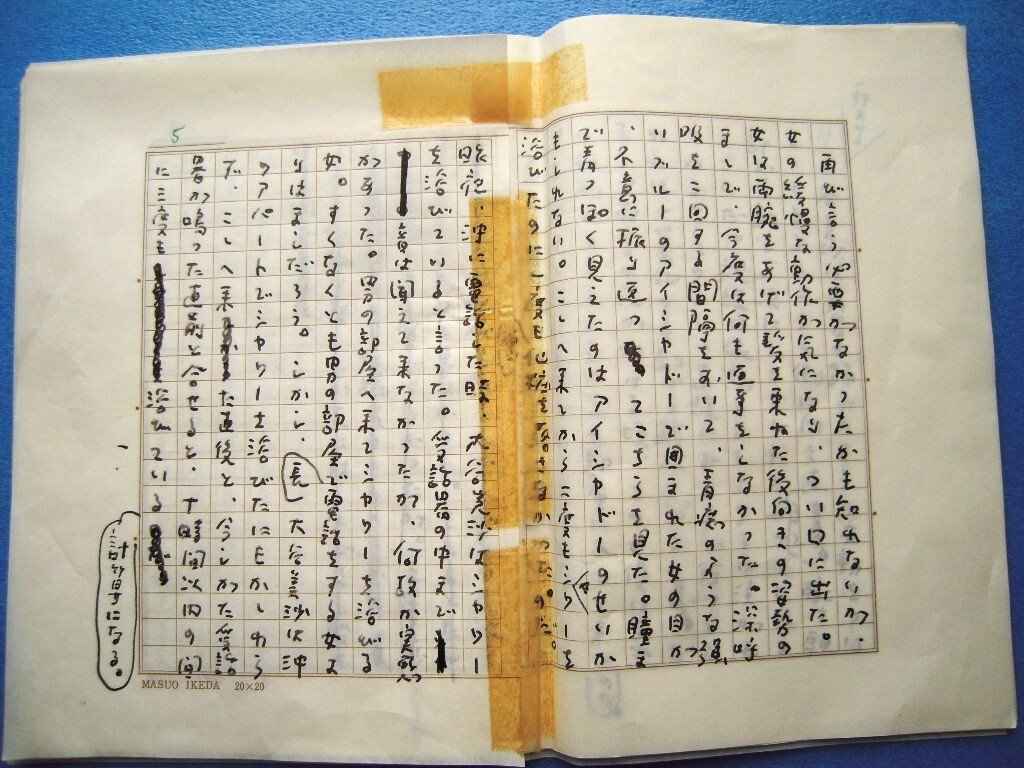 再び言う必要がなかったかも知れないが、
女の緩慢な動作が気になり、つい口に出た。
女は両腕をあげて髪を束ねた後向きの姿勢の
ままで、今度は何も返事をしなかった。深呼
吸を二回する間隔をおいて、青痣のような濃
いブルーのアイシャドーで囲まれた女の目が
、不意に振り返って こちらを見た。瞳ま
で青っぽく見えたのはアイシャドーのせいか
もしれない。ここへ来てから二度もシャワーを
浴びたのに一度も化粧を落さなかったのだ。
沖に電話した時、大谷美沙はシャワー
を浴びていると言った。受話器の中まで
音は聞えて来なかったが、何故か実感
があった。男の部屋へ来てシャワーを浴びる
女。すくなくとも男の部屋で電話をする女よ
りはましだろう。しかし、大谷美沙は沖
のアパートでシャワーを浴びたにもかかわら
ず、ここへ来た直後と、今しがた受話
器が鳴った直前と合せると、十時間以内の間
に三度も浴びている
計算になる。
5
MASUO IKEDA 20×20